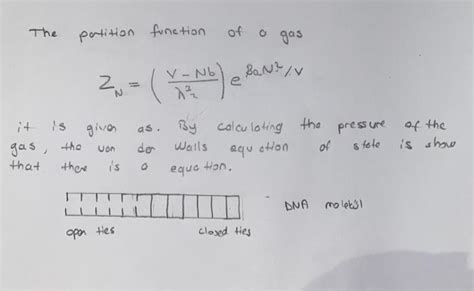 The partition function of a gas
Z_N = ( (V - Nb) / λ^2 ) e^{βaN²/V}
it is given as. By calculating the pressure of the
gas, the van der Walls equation of state is show
that there is a equation.
DNA molekül
open ties closed ties